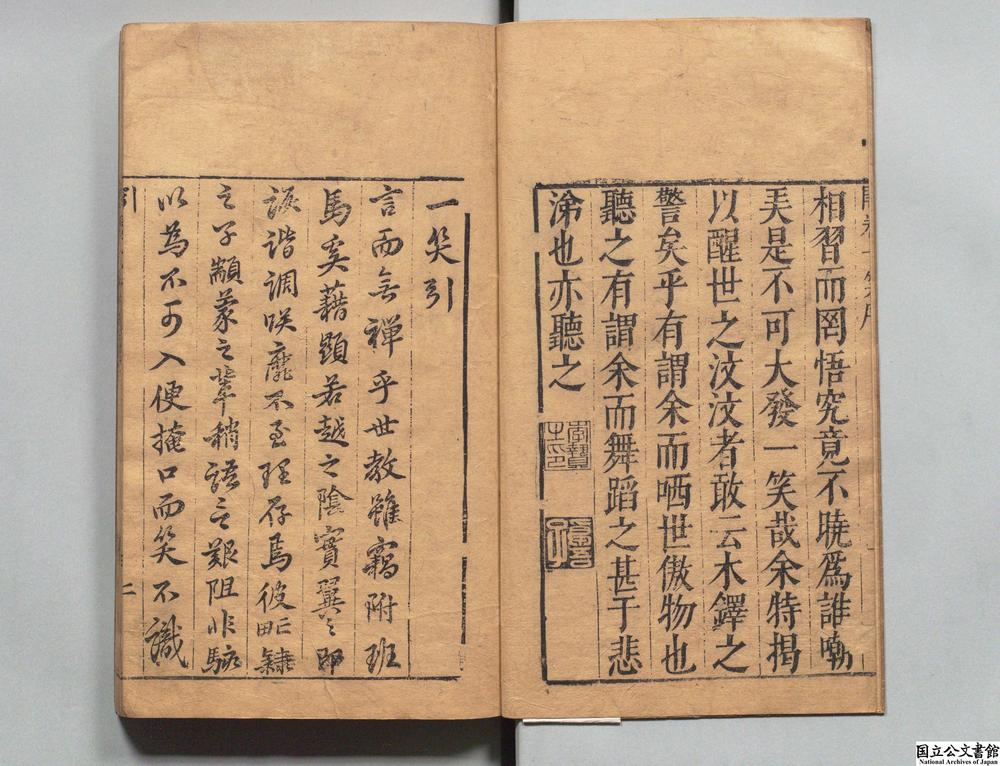 相習而罔悟究竟不曉爲誰嘲
美是不可大發一笑哉余特揭
以醒世之汶汶者敢云木鐸之
警矣乎有謂余而哂世傲物也
聽之有謂余而舞蹈之甚于悲
涕也亦聽之
一笑引
言而無裨乎世教雖竊附班
馬矣藉顯若越之陰實翼之即
詼諧調咲靡不至理存焉彼氓隸
之子顓蒙之輩稍語之艱阻非駭
以為不可入便掩口而笑不識
引
二
国立公文書館
National Archives of Japan